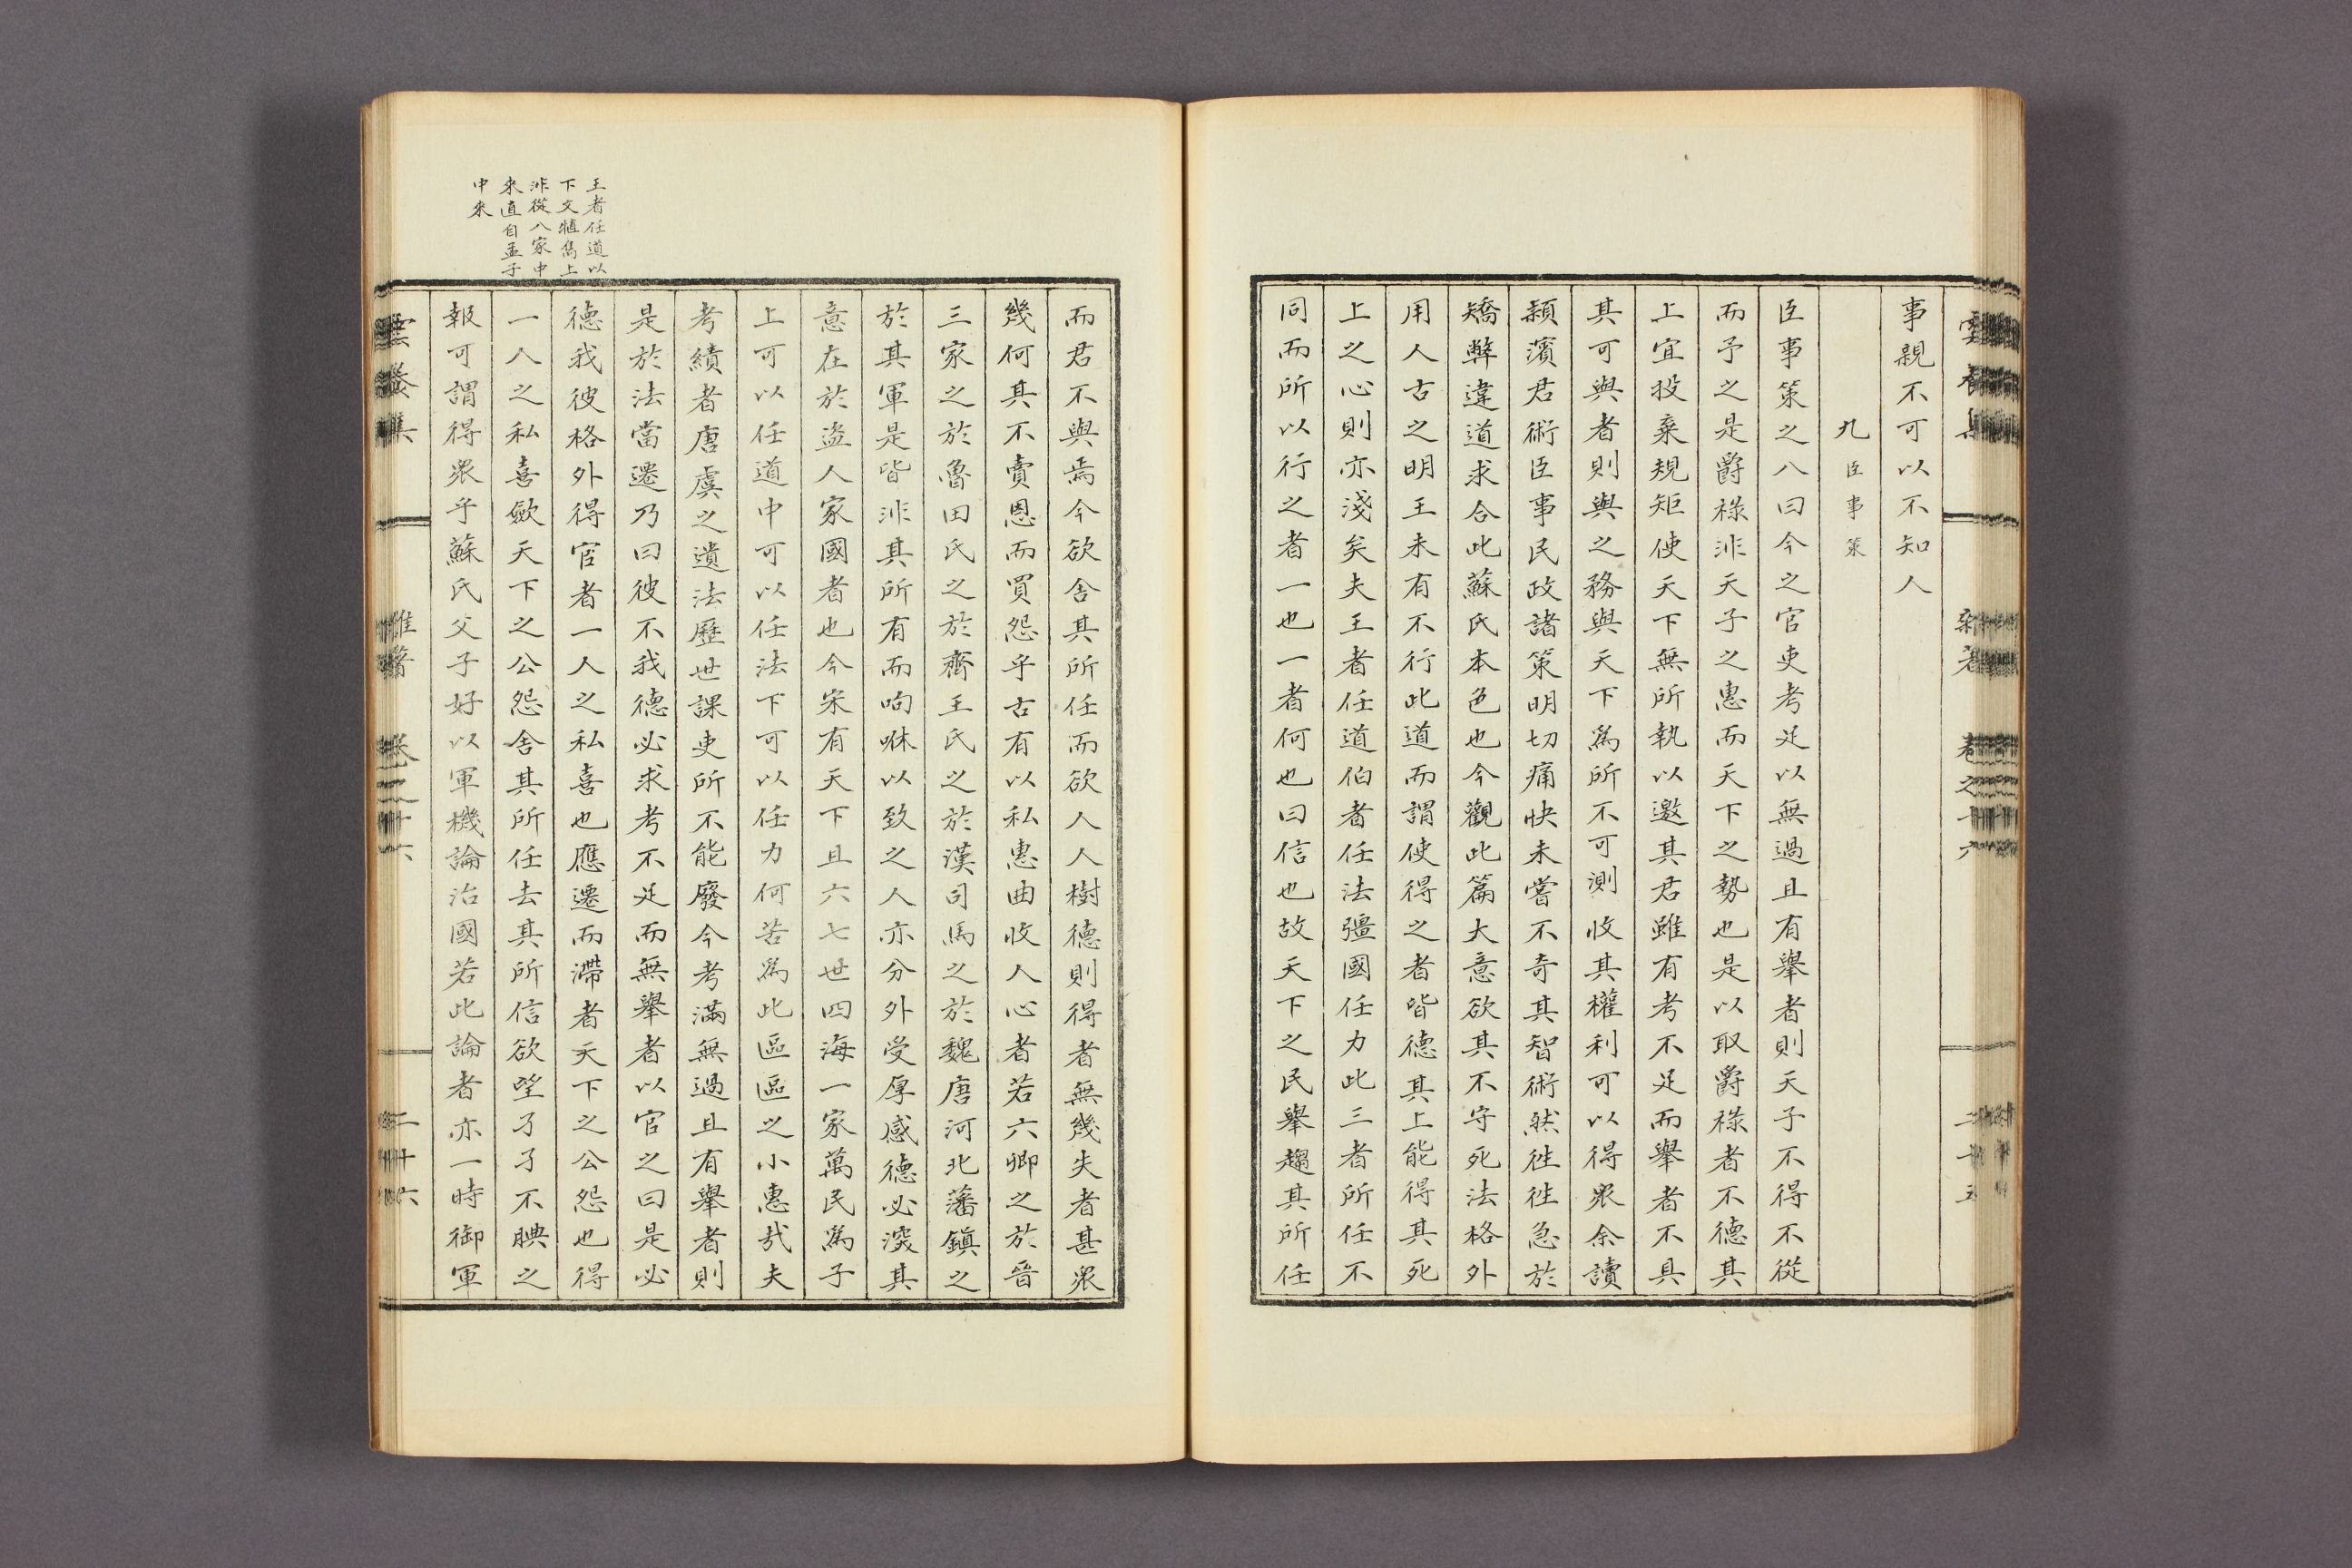 事親不可以不知人
九臣事策
臣事策之八曰今之官吏考足以無過且有舉者則天子不得不從
而予之是爵祿非天子之惠而天下之勢也是以取爵祿者不德其
上宜投棄規矩使天下無所執以邀其君雖有考不足而舉者不具
其可與者則與之務與天下爲所不可測收其權利可以得眾余讀
潁濱君術臣事民政諸策明切痛快未嘗不奇其智術然徃徃急於
矯弊違道求合此蘇氏本色也今觀此篇大意欲其不守死法格外
用人古之明王未有不行此道而謂使得之者皆德其上能得其死
上之心則亦淺矣夫王者任道伯者任法彊國任力此三者所任不
同而所以行之者一也一者何也曰信也故天下之民舉趨其所任
王者任道以
下文犆雋上
非從八家中
來直自孟子
中來
而君不與焉今欲舍其所任而欲人人樹德則得者無幾失者甚眾
幾何其不賣恩而買怨乎古有以私惠曲收人心者若六卿之於晉
三家之於魯田氏之於齊王氏之於漢司馬之於魏唐河北藩鎮之
於其軍是皆非其所有而呴咻以致之人亦分外受厚感德必深其
意在於盜人家國者也今宋有天下且六七世四海一家萬民爲子
上可以任道中可以任法下可以任力何苦爲此區區之小惠哉夫
考績者唐虞之遺法歷世課吏所不能廢今考滿無過且有舉者則
是於法當遷乃曰彼不我德必求考不足而無舉者以官之曰是必
德我彼格外得官者一人之私喜也應遷而滯者天下之公怨也得
一人之私喜斂天下之公怨舍其所任去其所信欲望孑孑不腆之
報可謂得眾乎蘇氏父子好以軍機論治國若此論者亦一時御軍
雜著 卷之十六 二十六